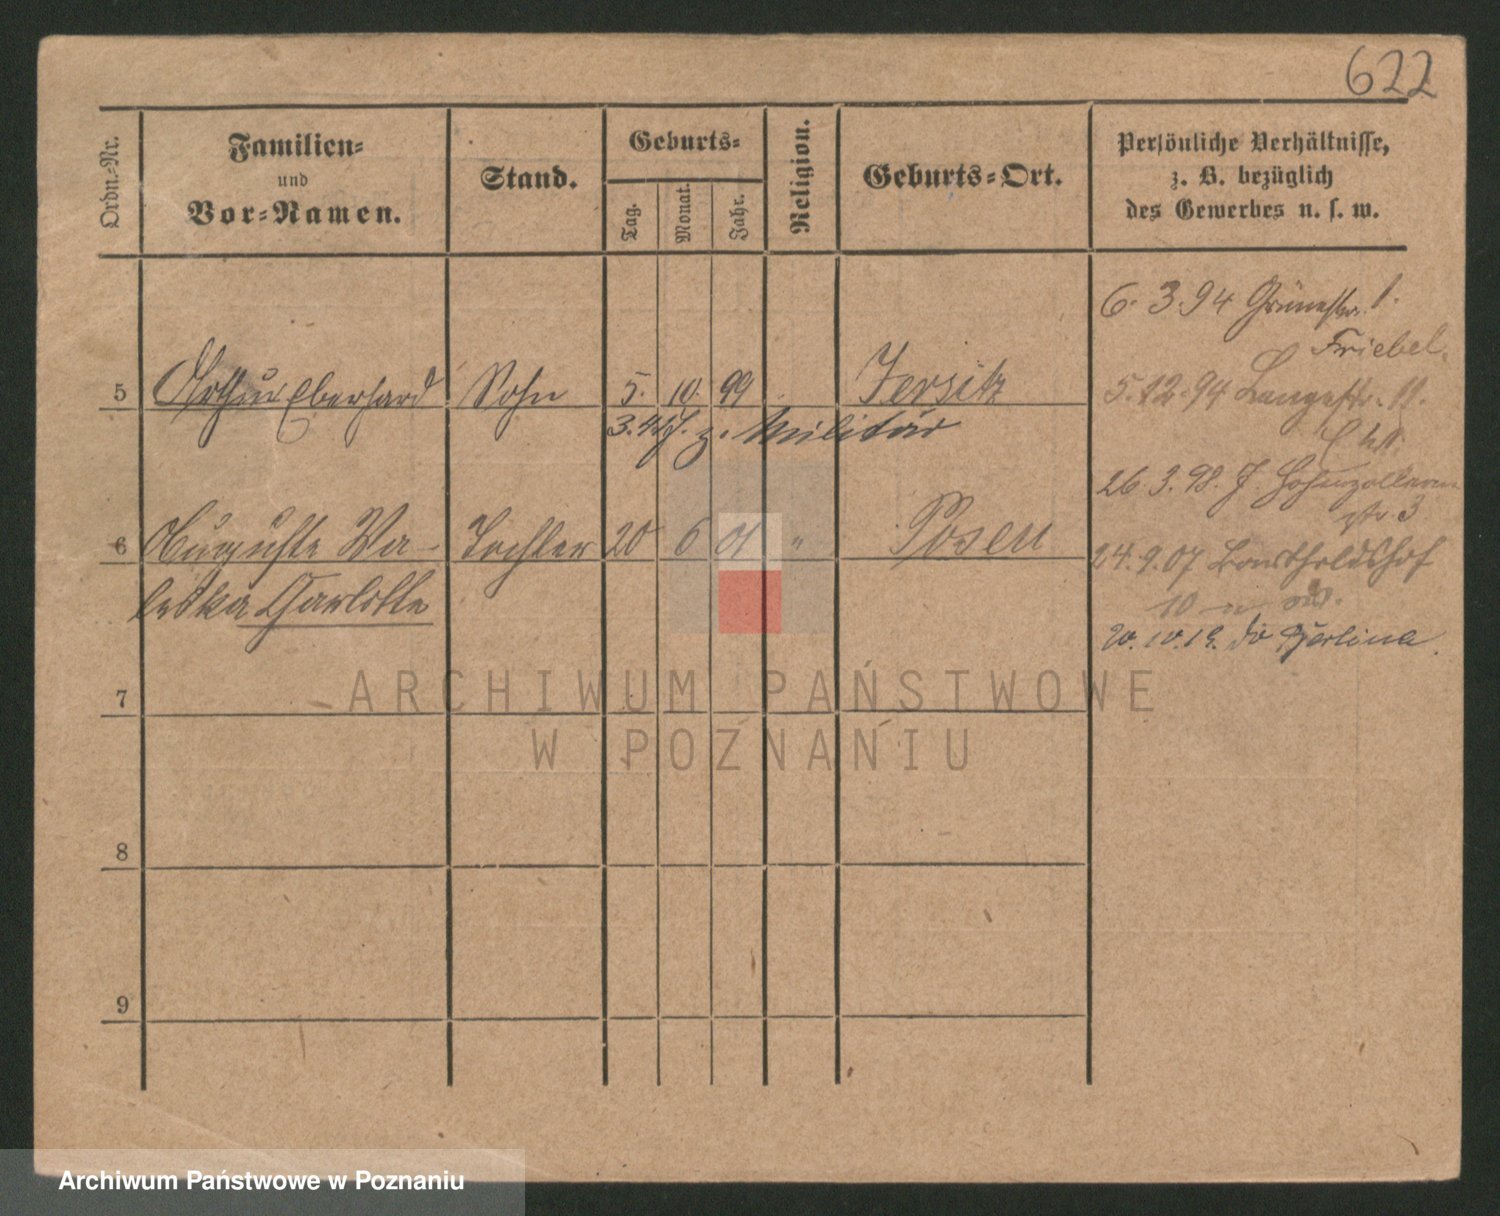 622
Ordn.-Nr.
Familien-
und
Vor-Namen.
Stand.
Geburts-
Tag.
Monat.
Jahr.
Religion.
Geburts-Ort.
Persönliche Verhältnisse,
z. B. bezüglich
des Gewerbes u. s. w.
6. 3. 94 Grünestr. 1.
Friebel.
5 Arthur Eberhard Sohn 5. 10. 99 Jersitz
5. 12. 94 Langestr. 11.
3. z. Militär
26. 3. 98. J. Hohenzollern
str 3
6 Auguste Va- Tochter 20 6 01 " Posen
24. 9. 07
leska Charlotte
10
20. 10. 19. do Berlina.
7
8
9
ARCHIWUM PAŃSTWOWE
W POZNANIU
Archiwum Państwowe w Poznaniu